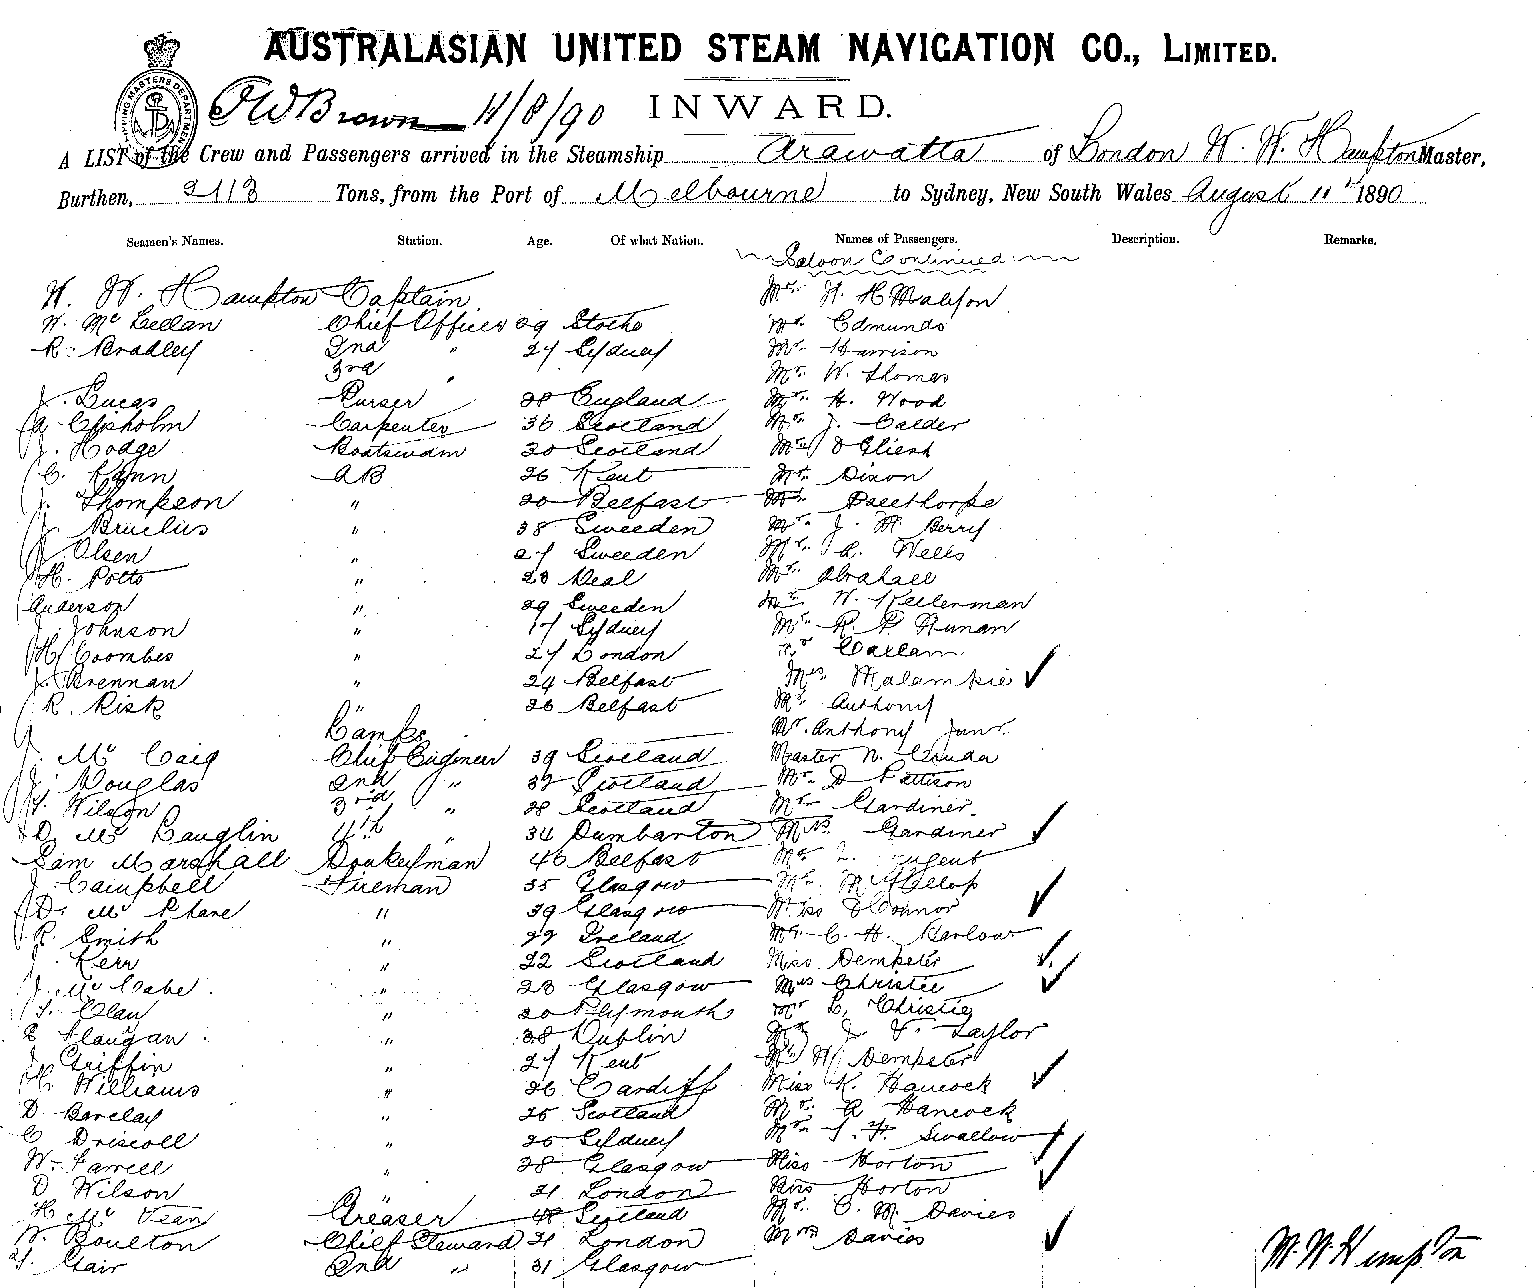 AUSTRALASIAN UNITED STEAM NAVIGATION CO., LIMITED.
P W Brown 11/8/90 INWARD.
A LIST of the Crew and Passengers arrived in the Steamship Arawatta of London W. W. Hampton Master,
Burthen, 2113 Tons, from the Port of Melbourne to Sydney, New South Wales August 11th 1890
Seamen's Names. Station. Age. Of what Nation. Names of Passengers. Description. Remarks.
Saloon Continued
W. W. Hampton Captain Mr. H
W. Mc Lellan Chief Officer 29 Mr. Edmunds
R. Bradley 2nd " 27 Sydney Mr. Harrison
3rd " Mr. W. Thomas
J. Lucas Purser 28 England Mr. H. Wood
A Chisholm Carpenter 36 Scotland Mr. J. Calder
J. Hodge Boatswain 30 Scotland
C. AB 26 Kent Mr. Dixon
J. Thompson " 20 Belfast
J. " 38 Sweeden Mr. J. W Berry
Olsen " 27 Sweeden Mr. A. Wells
H. Potts " 23 Deal Mr. Abrahall
Anderson " 29 Sweeden Mr. W. Kellerman
J. Johnson " 17 Sydney Mr. R. P.
H Coombes " 27 London
J. Brennan " 24 Belfast Mrs
R. Risk " 26 Belfast Mr. Anthony
Lamps Mr. Anthony Junr.
J. Mc Caig Chief Engineer 39 Scotland Master N.
J. Douglas 2nd " 32 Scotland Mr. D Pattison
Wilson 3rd " 28 Scotland Mr. Gardiner
D. Mc 4th " 34 Dumbarton Mrs. Gardiner
Sam Marshall Donkeyman 46 Belfast Mr
J. Campbell Fireman 35 Glasgow Mr.
D. Mc Phane " 39 Glasgow Miss O'Connor
R. Smith " 22 Ireland Mr. C. H. Barlow
J. Kerr " 22 Scotland Miss Dempster
J. Mc Cabe " 23 Glasgow Mrs Christie
" 20 Plymouth Mr L. Christie
" 38 Dublin Mr J. Taylor
J. Griffin " 27 Kent Mr. W Dempster
H. Williams " 26 Cardiff Miss K. Hancock
D Barclay " 25 Scotland Mr. A Hancock
C Driscoll " 25 Sydney Mr. Swallow
W. Farrell " 28 Glasgow Miss Horton
D Wilson " 21 London Miss Horton
H Mc Vean Greaser Scotland Mr. C. M. Davies
W. Boulton Chief Steward London Mrs Davies
Gair 2nd " 31 Glasgow
W. W. Hampton